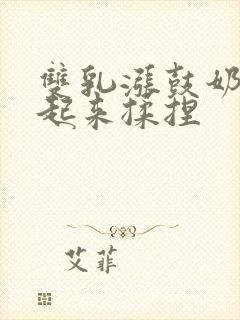 雙乳漲鼓奶
起来揉捏
艾菲